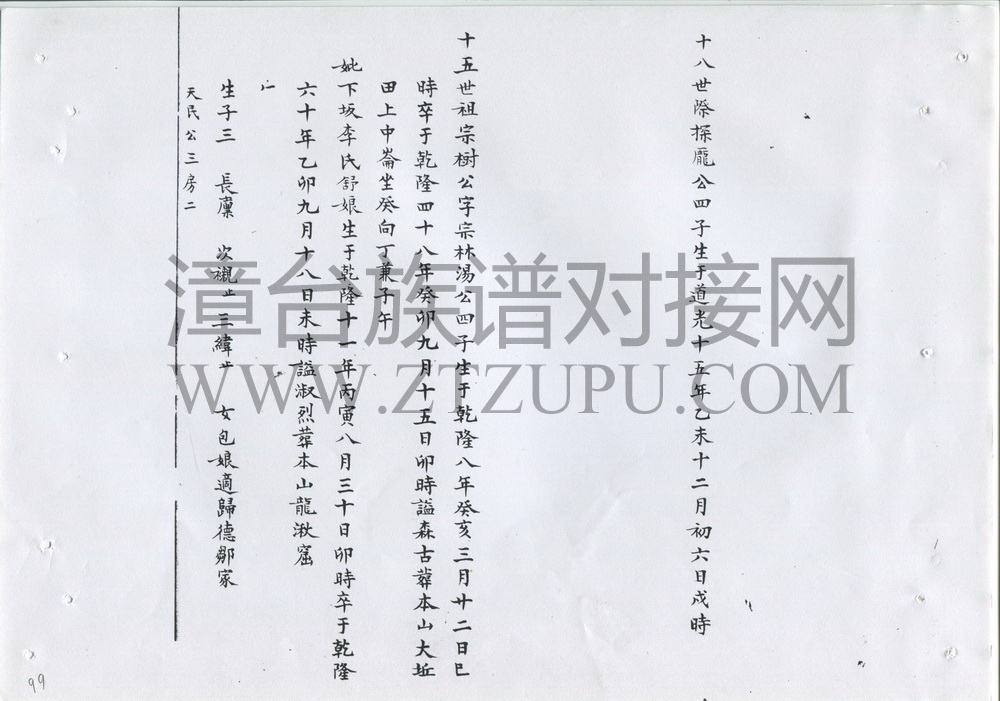 十八世際探龐公四子生于道光十五年乙未十二月初六日戌時
十五世祖宗樹公字宗林湯公四子生于乾隆八年癸亥三月廿二日巳
時卒于乾隆四十八年癸卯九月十五日卯時謚森古葬本山大坵
田上中崙坐癸向丁兼子午
妣下坂李氏舒娘生于乾隆十一年丙寅八月三十日卯時卒于乾隆
六十年乙卯九月十八日未時謚淑烈葬本山龍湫窟
生子三 長廩 次襯 三緯 女包娘適歸德鄒家
天民公三房二
99
漳台族谱对接网
WWW.ZTZUPU.COM